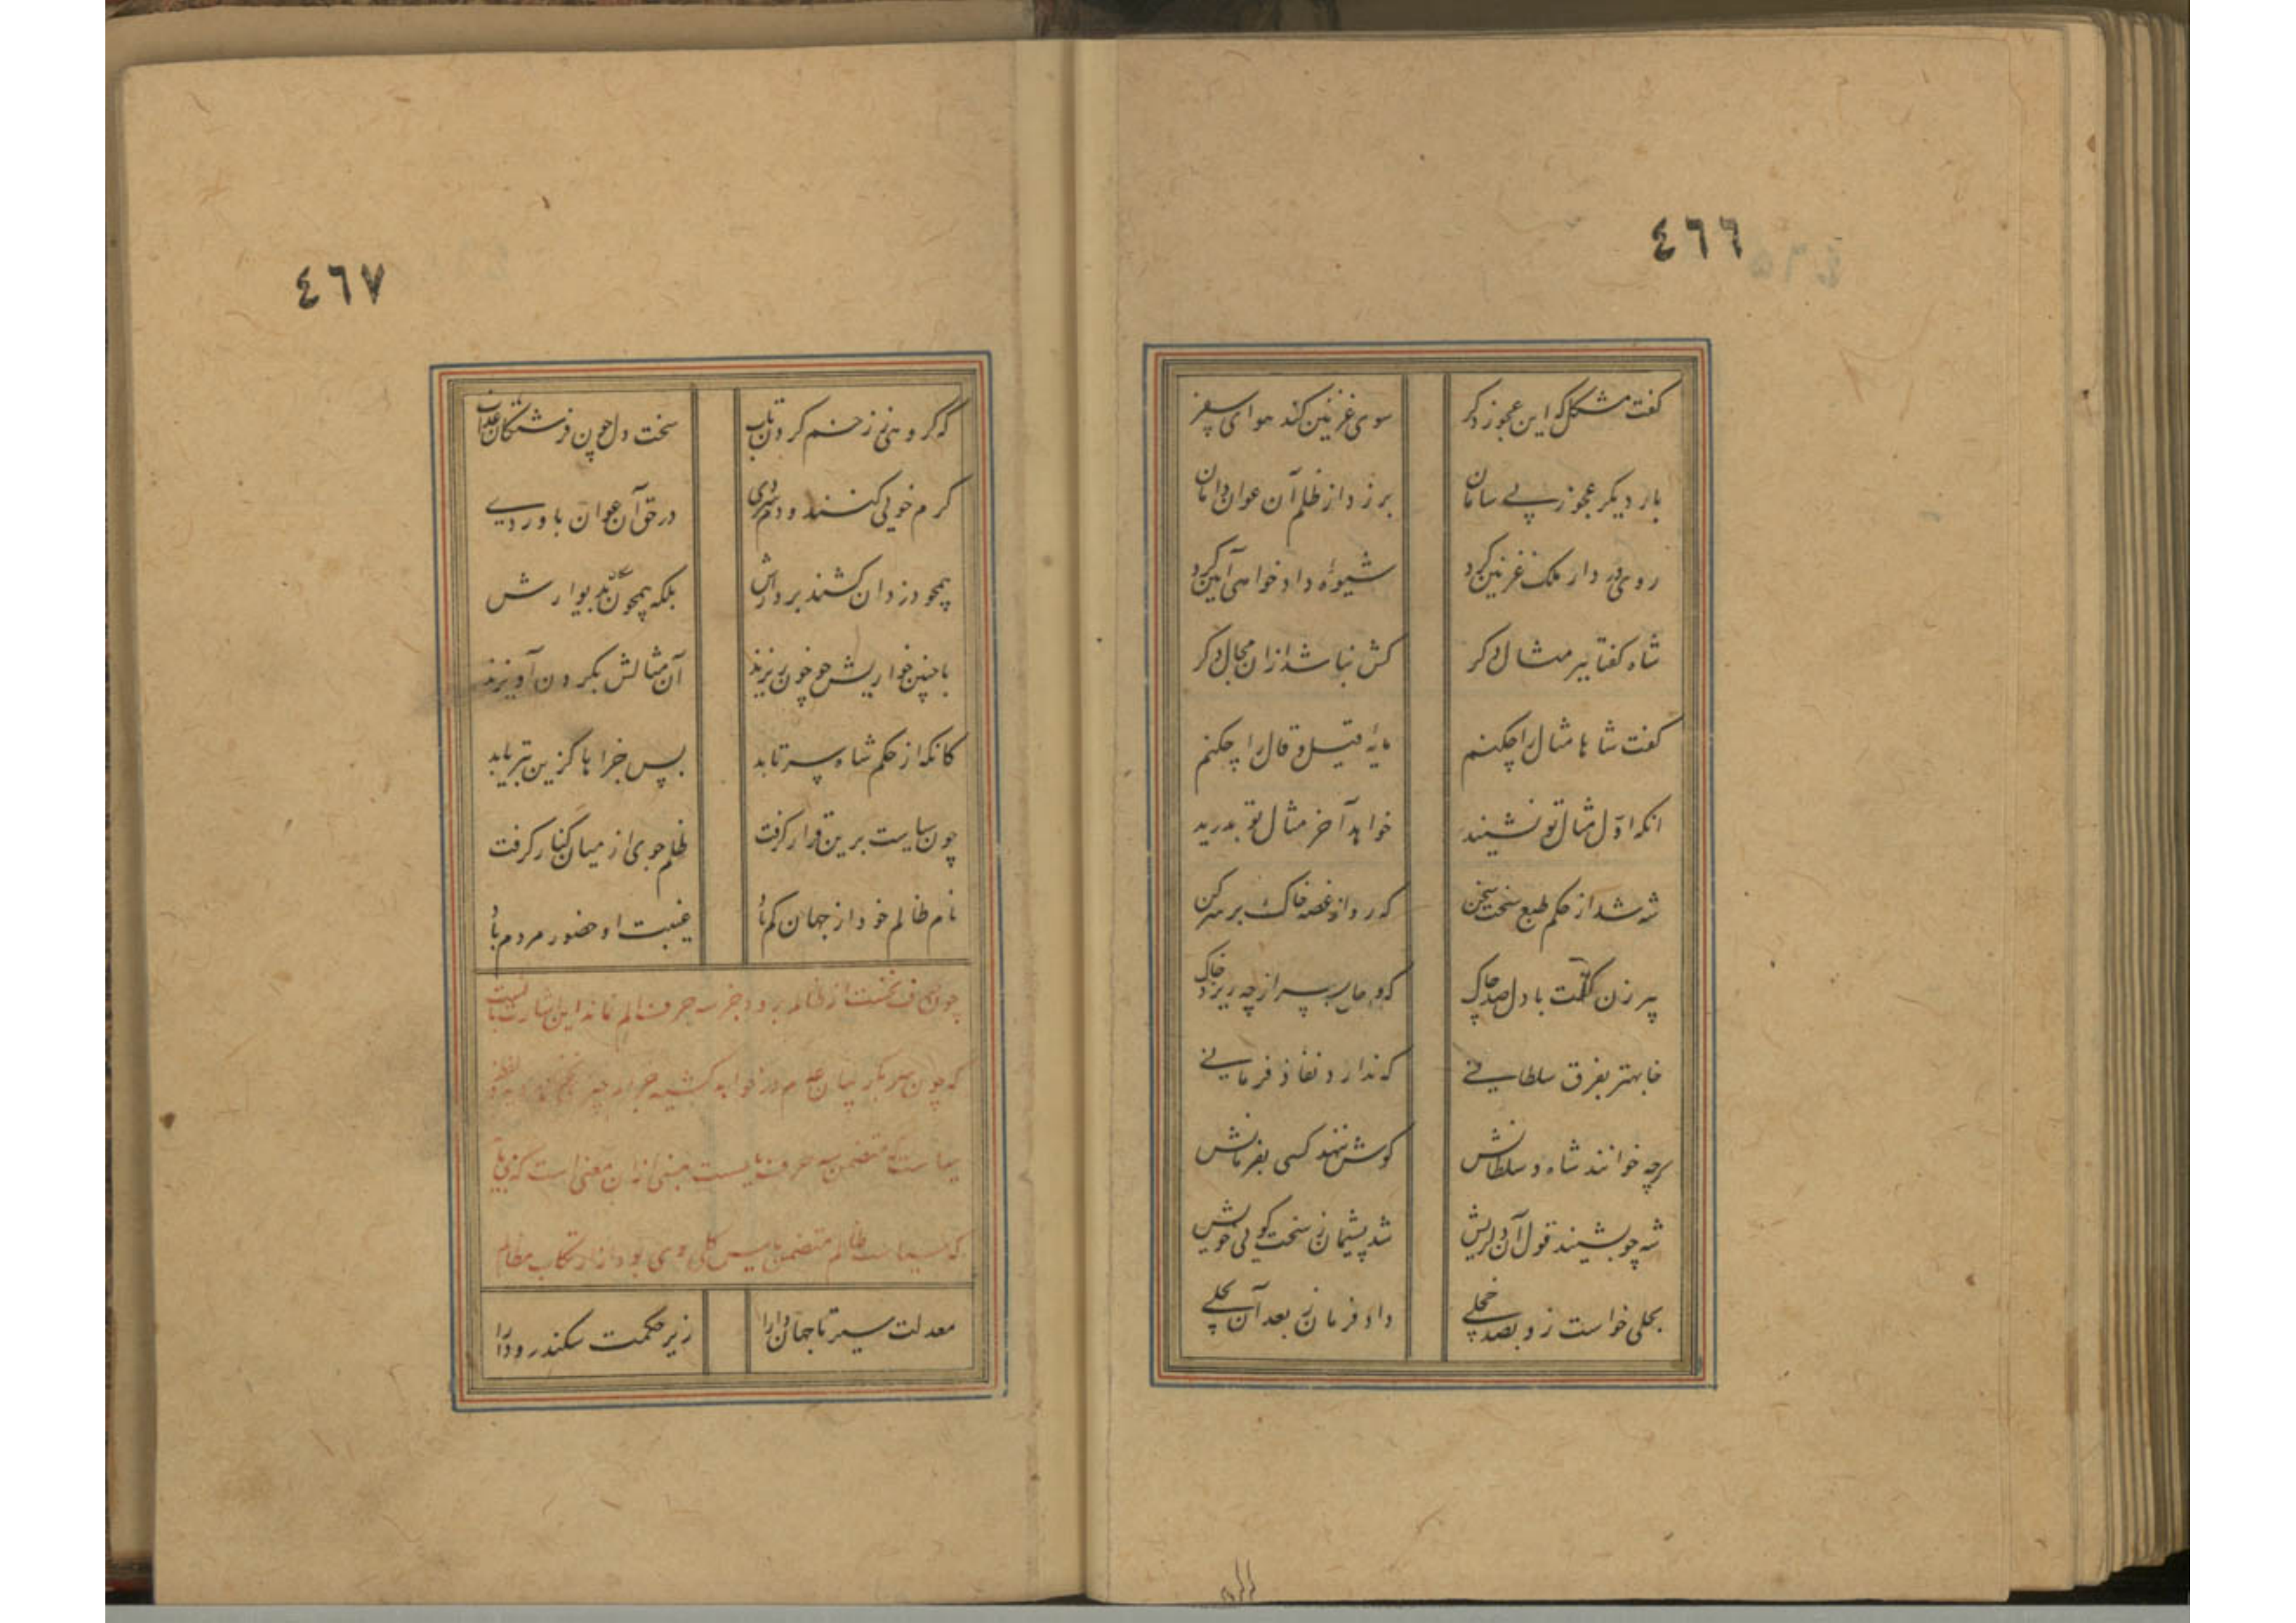 ٤٦٦
گفت مشکل که این عجوز دگر سوی غزنین کند هوای سفر
بار دیگر عجوز بی سامان بر زد از ظلم آن عوان دامان
روی در دار ملک غزنین کرد شیوه داد خواهی آیین کرد
شاه گفتا ببر مثال دگر کش نباشد ازان مجال دگر
گفت شاها مثال را چکنم مایهٔ قیل و قال را چکنم
آنکه اول مثال تو نشنید خواهد آخر مثال تو بدرید
شه شد از حکم طبع سخت سخن که رو از غصه خاک بر سر کن
پیر زن گفت با دل صد چاک که و جان پسر از چه ریزد خاک
خا بهتر بفرق سلطانی که ندارد نفاذ فرمانی
هرچه خوانند شاه و سلطانش گوش ننهد کسی بفرمانش
شه چو بشنید قول آن دلریش شد پشیمان ز سخت گویی خویش
بحلی خواست زو بصد خجلی داد فرمان ز بعد آن بحلی
٤٦٧
که گروهی ز رحم کرده تاب سخت دل چون فرشتگان عذاب
گرم خویی کنند و دم سردی در حق آن عوان باوردی
همچو دزدان کشند بر دارش بلکه همچون بدیوارش
با چنین خواریش چو خون ریزند آن مثالش بگردن آویزند
کانکه از حکم شاه سر تابد پس جزاها کزین بتر یابد
چون سیاست برین قرار گرفت ظلم جوی از میان کنار گرفت
نام ظالم خود از جهان گم باد غیبت او حضور مردم باد
چون حرف نخست از ظالم برود جز سه حرف الم نماند این اشارت بآنست
که چون سر
سیاست که متضمن سه حرف یاست مبنی ازان معنی است که
که سیاست ظالم متضمن یاس کلی وی بود از ارتکاب مظالم
معدلت سیرتا جهان دارا زیر حکمت سکندر و دارا